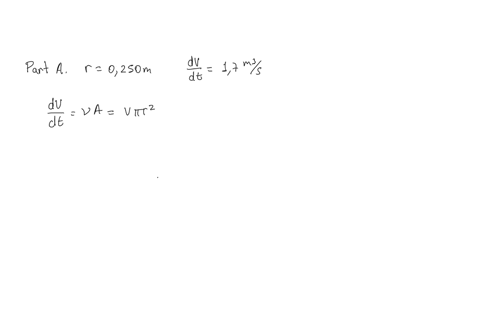 Part A. r = 0,250m dV/dt = 1,7 m³/s
dV/dt = vA = vπr²